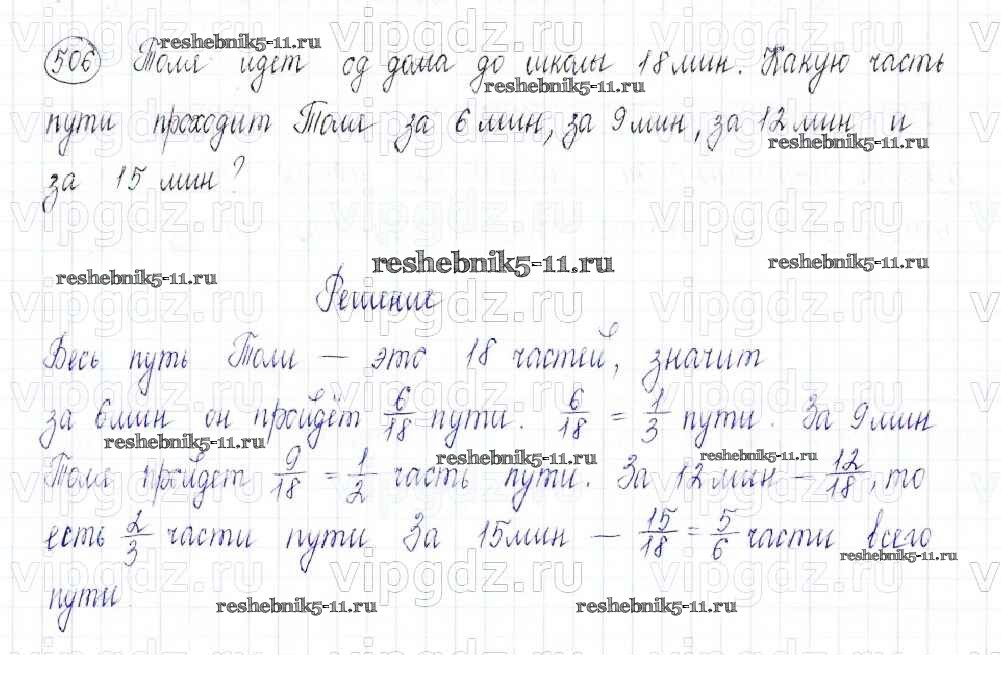 506 Толя идет од дома до школы 18 мин. Какую часть
пути проходит Толя за 6 мин, за 9 мин, за 12 мин и
за 15 мин?
Решение
Весь путь Толи — это 18 частей, значит
за 6 мин он пройдёт 6/18 пути. 6/18 = 1/3 пути. За 9 мин
Толя пройдет 9/18 = 1/2 часть пути. За 12 мин – 12/18, то
есть 2/3 части пути За 15 мин — 15/18 = 5/6 части всего
пути.
reshebnik5-11.ru
vipgdz.ru